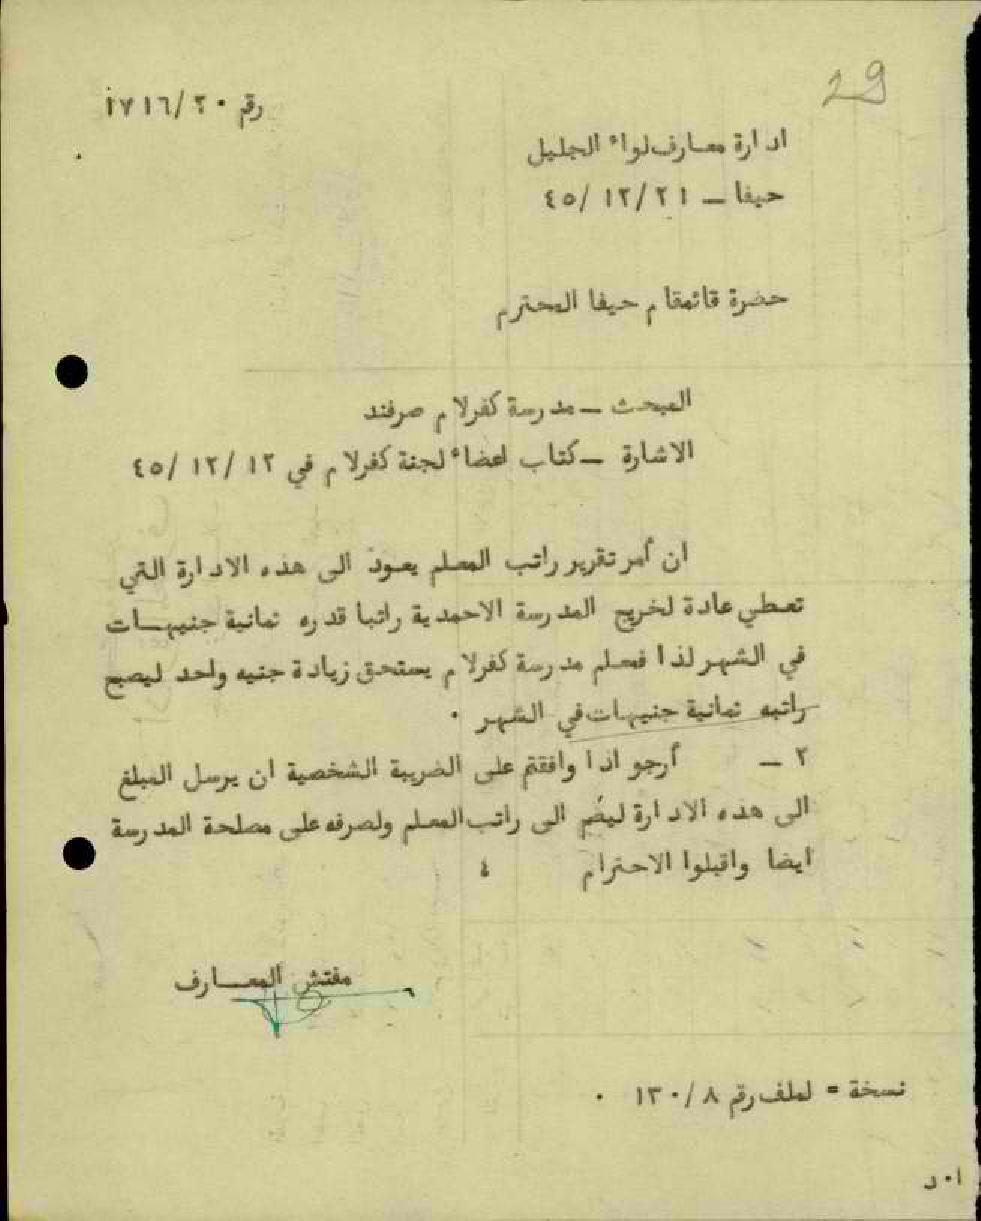 29
رقم ٢٠/١٧١٦
ادارة معارف لواء الجليل
حيفا ــ ٢١/١٢/ ٤٥
حضرة قائمقام حيفا المحترم
المبحث ــ مدرسة كفرلام صرفند
الاشارة ــ كتاب اعضاء لجنة كفرلام في ١٢/ ١٢/ ٤٥
ان أمر تقرير راتب المعلم يعود الى هذه الادارة التي
تعطي عادة لخريج المدرسة الاحمدية راتبا قدره ثمانية جنيهــات
في الشهر لذا فمعلم مدرسة كفرلام يستحق زيادة جنيه واحد ليصبح
راتبه ثمانية جنيهات في الشهر ٠
٢ ــ أرجو اذا وافقتم على الضريبة الشخصية ان يرسل المبلغ
الى هذه الادارة ليضم الى راتب المعلم ولصرفه على مصلحة المدرسة
ايضا واقبلوا الاحترام ٤
مفتش المعــارف
نسخة = لملف رقم ٨/١٣٠ ٠
ا٠د